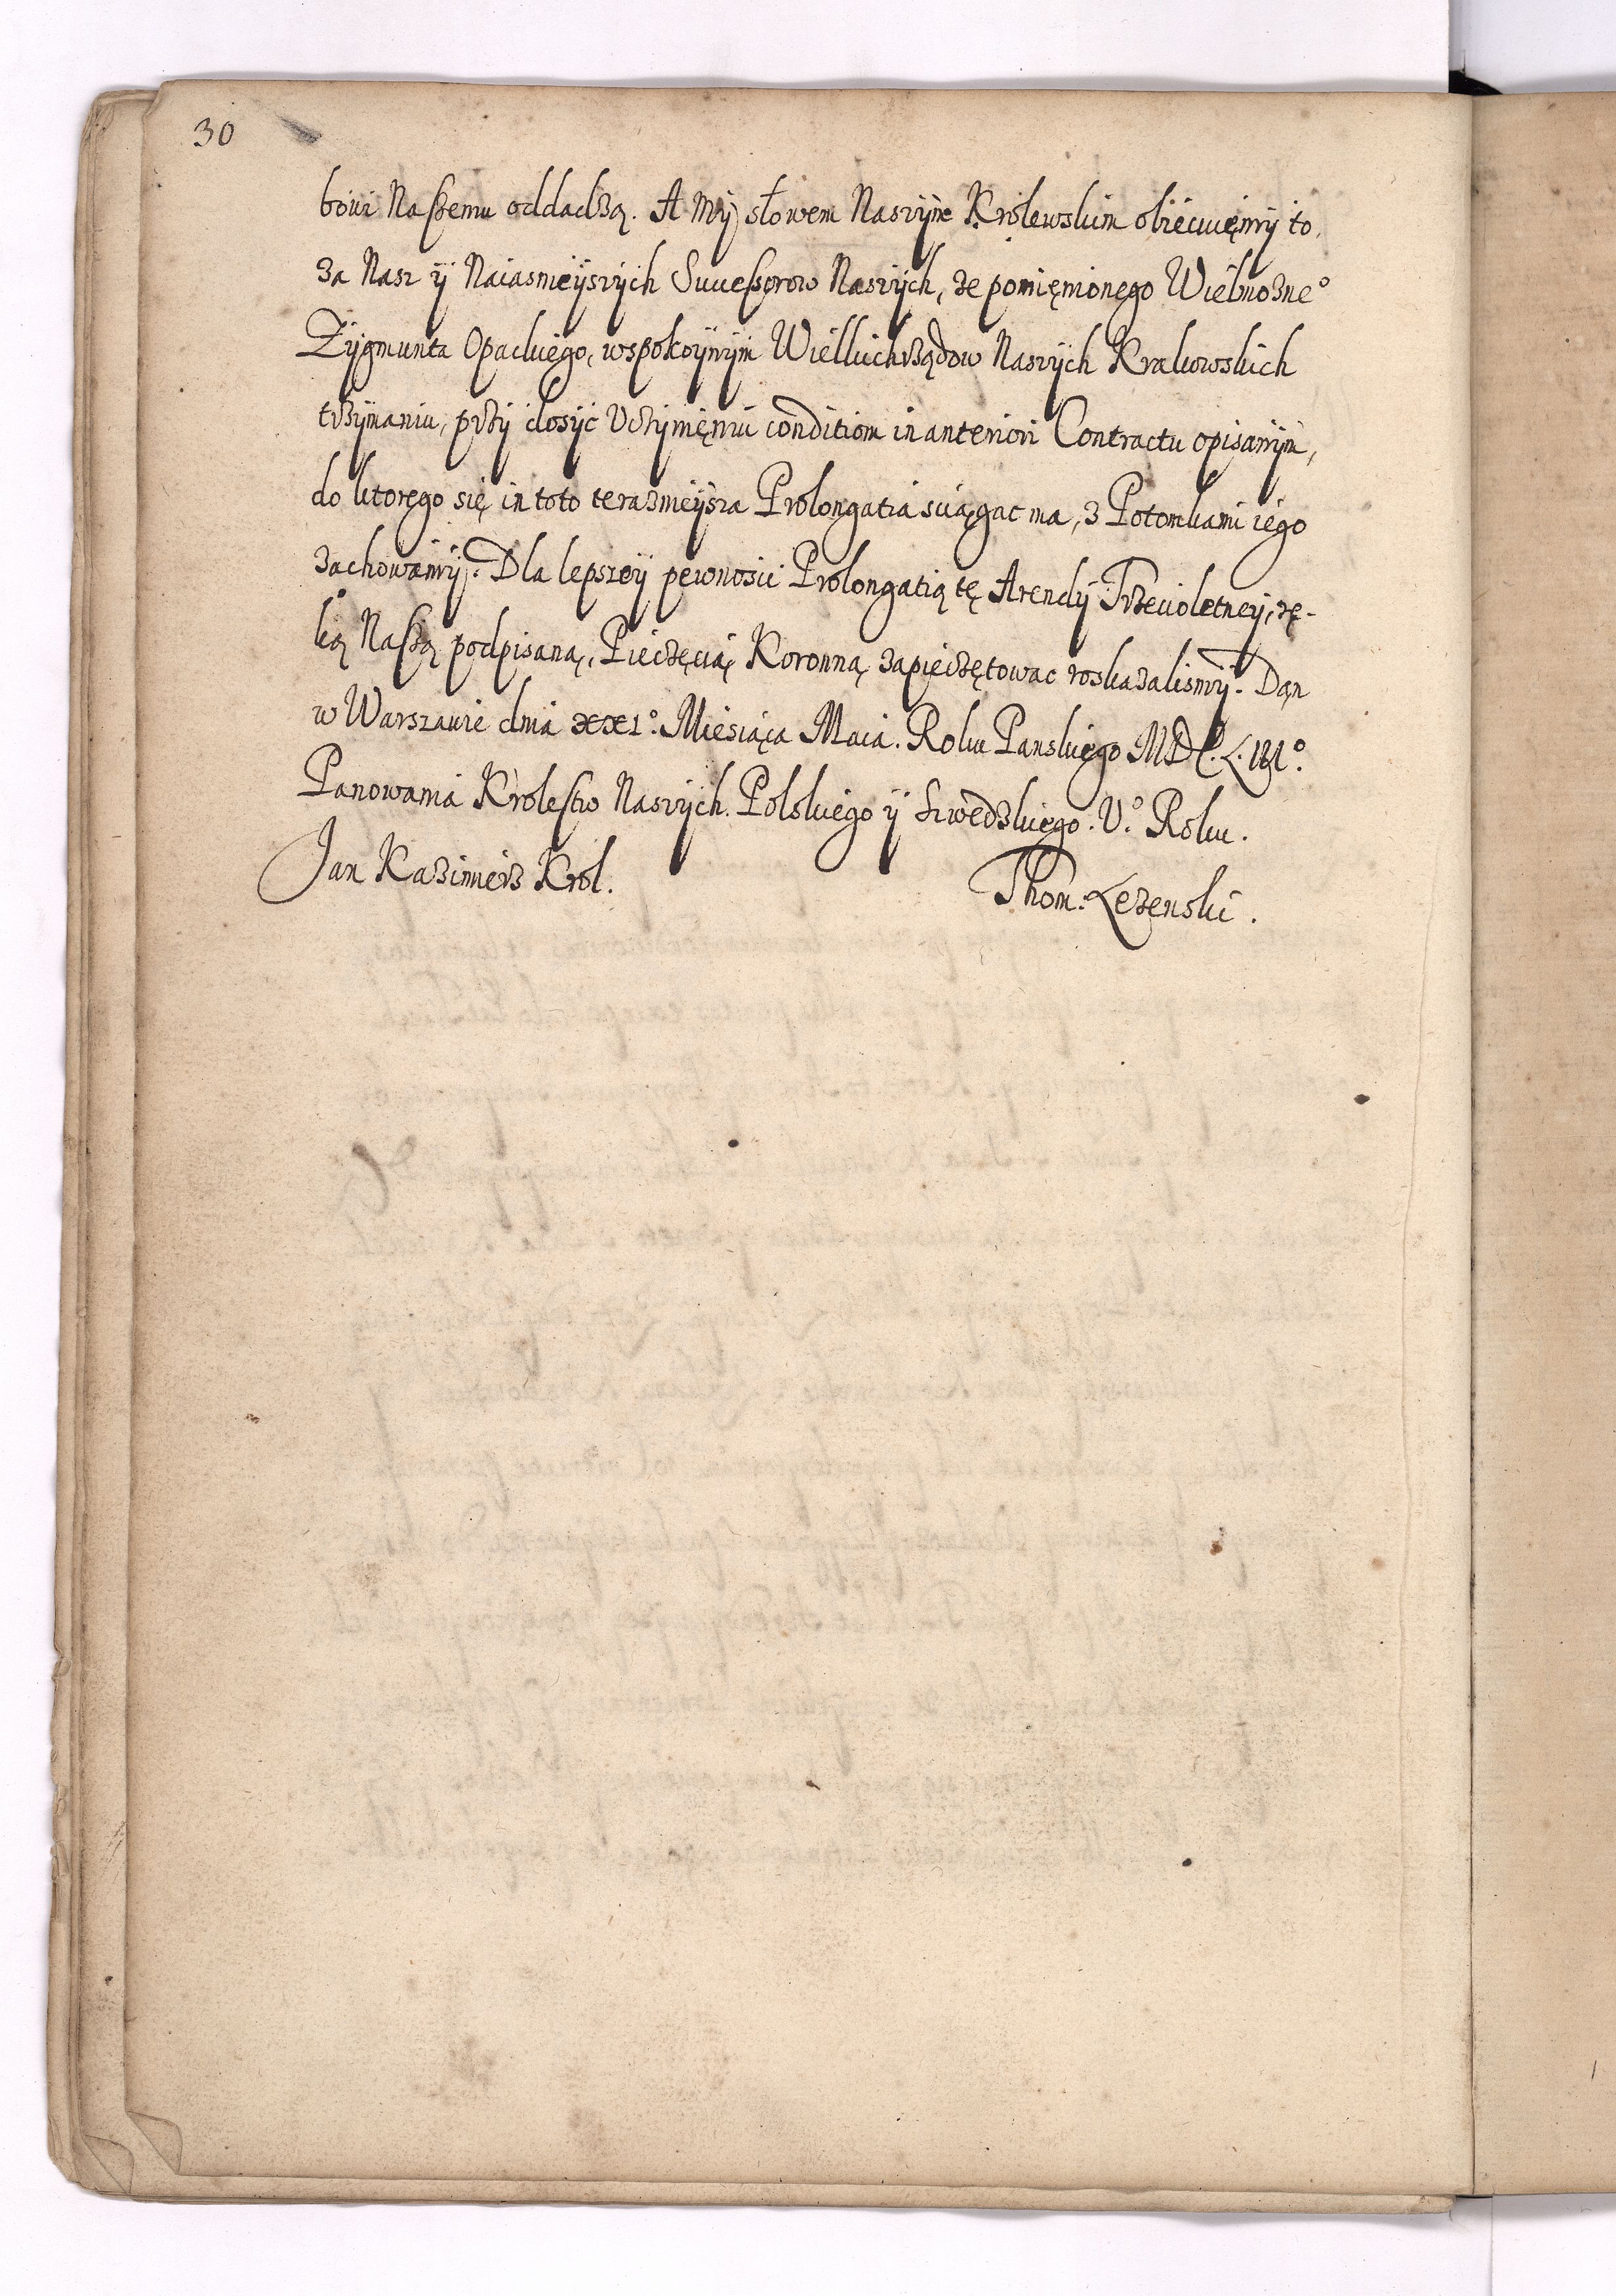 30
bowi Naßemu oddadzą. A My słowem Naszym Krolewskim obiecuięmy to,
za Nasz y Naiasnieyszych Successorow Naszych, że pomięnionego Wielmożne°
Zygmunta Opackiego, w spokoynym Wielkichrządow Naszych Krakowskich
trzymaniu, przy dosyć Uczynięniu conditiom in anteriori Contractu opisanym,
do ktorego się in toto terażnieysza Prolongatia sciągac ma, z Potomkami iego
zachowamy. Dla lepszey pewnosci Prolongatią tę Arendy Trzecioletney, rę-
ką Naßą podpisaną, Pieczęcią Koronną zapieczętowac roskazalismy. Dan
w Warszawie dnia XXI°. Miesiąca Maia. Roku Panskiego MDC.L.III°.
Panowania Krolestw Naszych. Polskiego y Szwedzkiego. V.° Roku.
Jan Kazimierz Krol.
Thom: Leżenski.